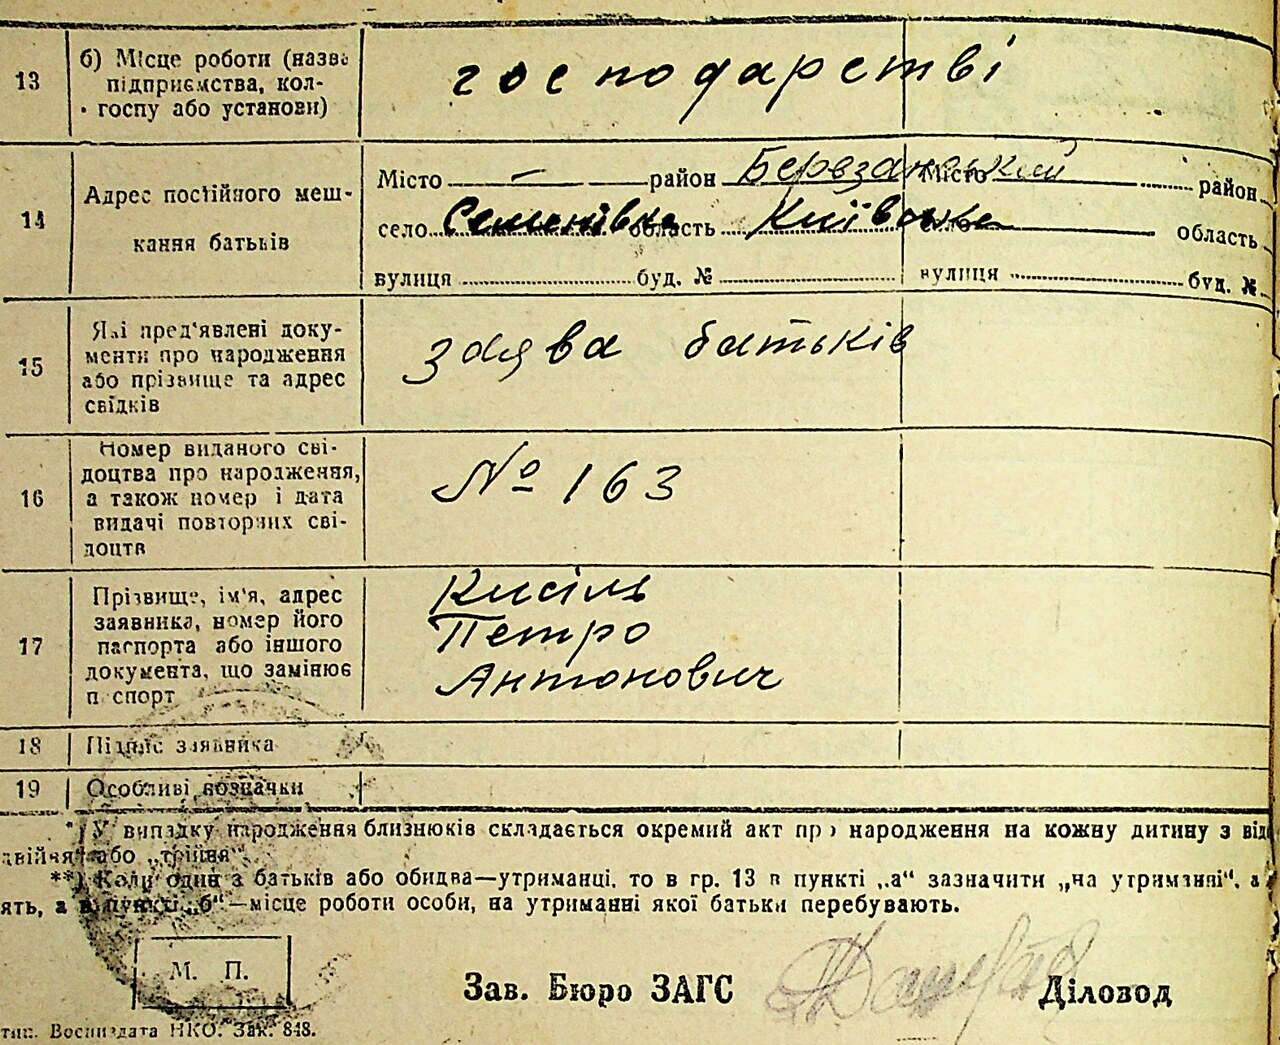 13
б) Місце роботи (назва
підприємства, кол-
госпу або установи)
господарстві
14
Адрес постійного меш-
кання батьків
Місто — район Березанський Місто район
село Семенівка область Київська село область
вулиця буд. № вулиця буд. №
15
Які пред'явлені доку-
менти про народження
або прізвище та адрес
свідків
заява батьків
16
Номер виданого сві-
доцтва про народження,
а також номер і дата
видачі повторних сві-
доцтв
№ 163
17
Прізвище, ім'я, адрес
заявника, номер його
паспорта або іншого
документа, що замінює
п спорт
Кисіль
Петро
Антонович
18 Підпис заявника
19 Особливі возначки
*) У випадку народження близнюків складається окремий акт про народження на кожну дитину з від
двійня" або „трійня".
**) Коли один з батьків або обидва—утриманці, то в гр. 13 в пункті „а" зазначити „на утриманні", а
ять, а в пункті „б"—місце роботи особи, на утриманні якої батьки перебувають.
М. П.
Зав. Бюро ЗАГС Діловод
тип. Воениздата НКО. Зак. 848.